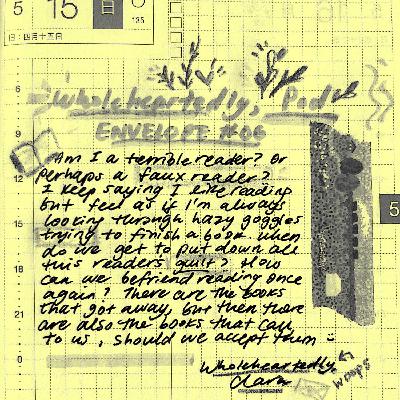 5
15
日
135
旧:四月十五日
Wholeheartedly, Pid
ENVELOPE #06
6
9
12
15
18
21
0
5
Am I a terrible reader? Or
perhaps a faux reader?
I keep saying I like reading
but feel as if I'm always
looking through hazy goggles
trying to finish a book. When
do we get to put down all
this readers guilt? How
can we befriend reading once
again? There are the books
that got away, but then there
are also the books that call
to us, should we accept them :)
Wholeheartedly,
Clara
woops